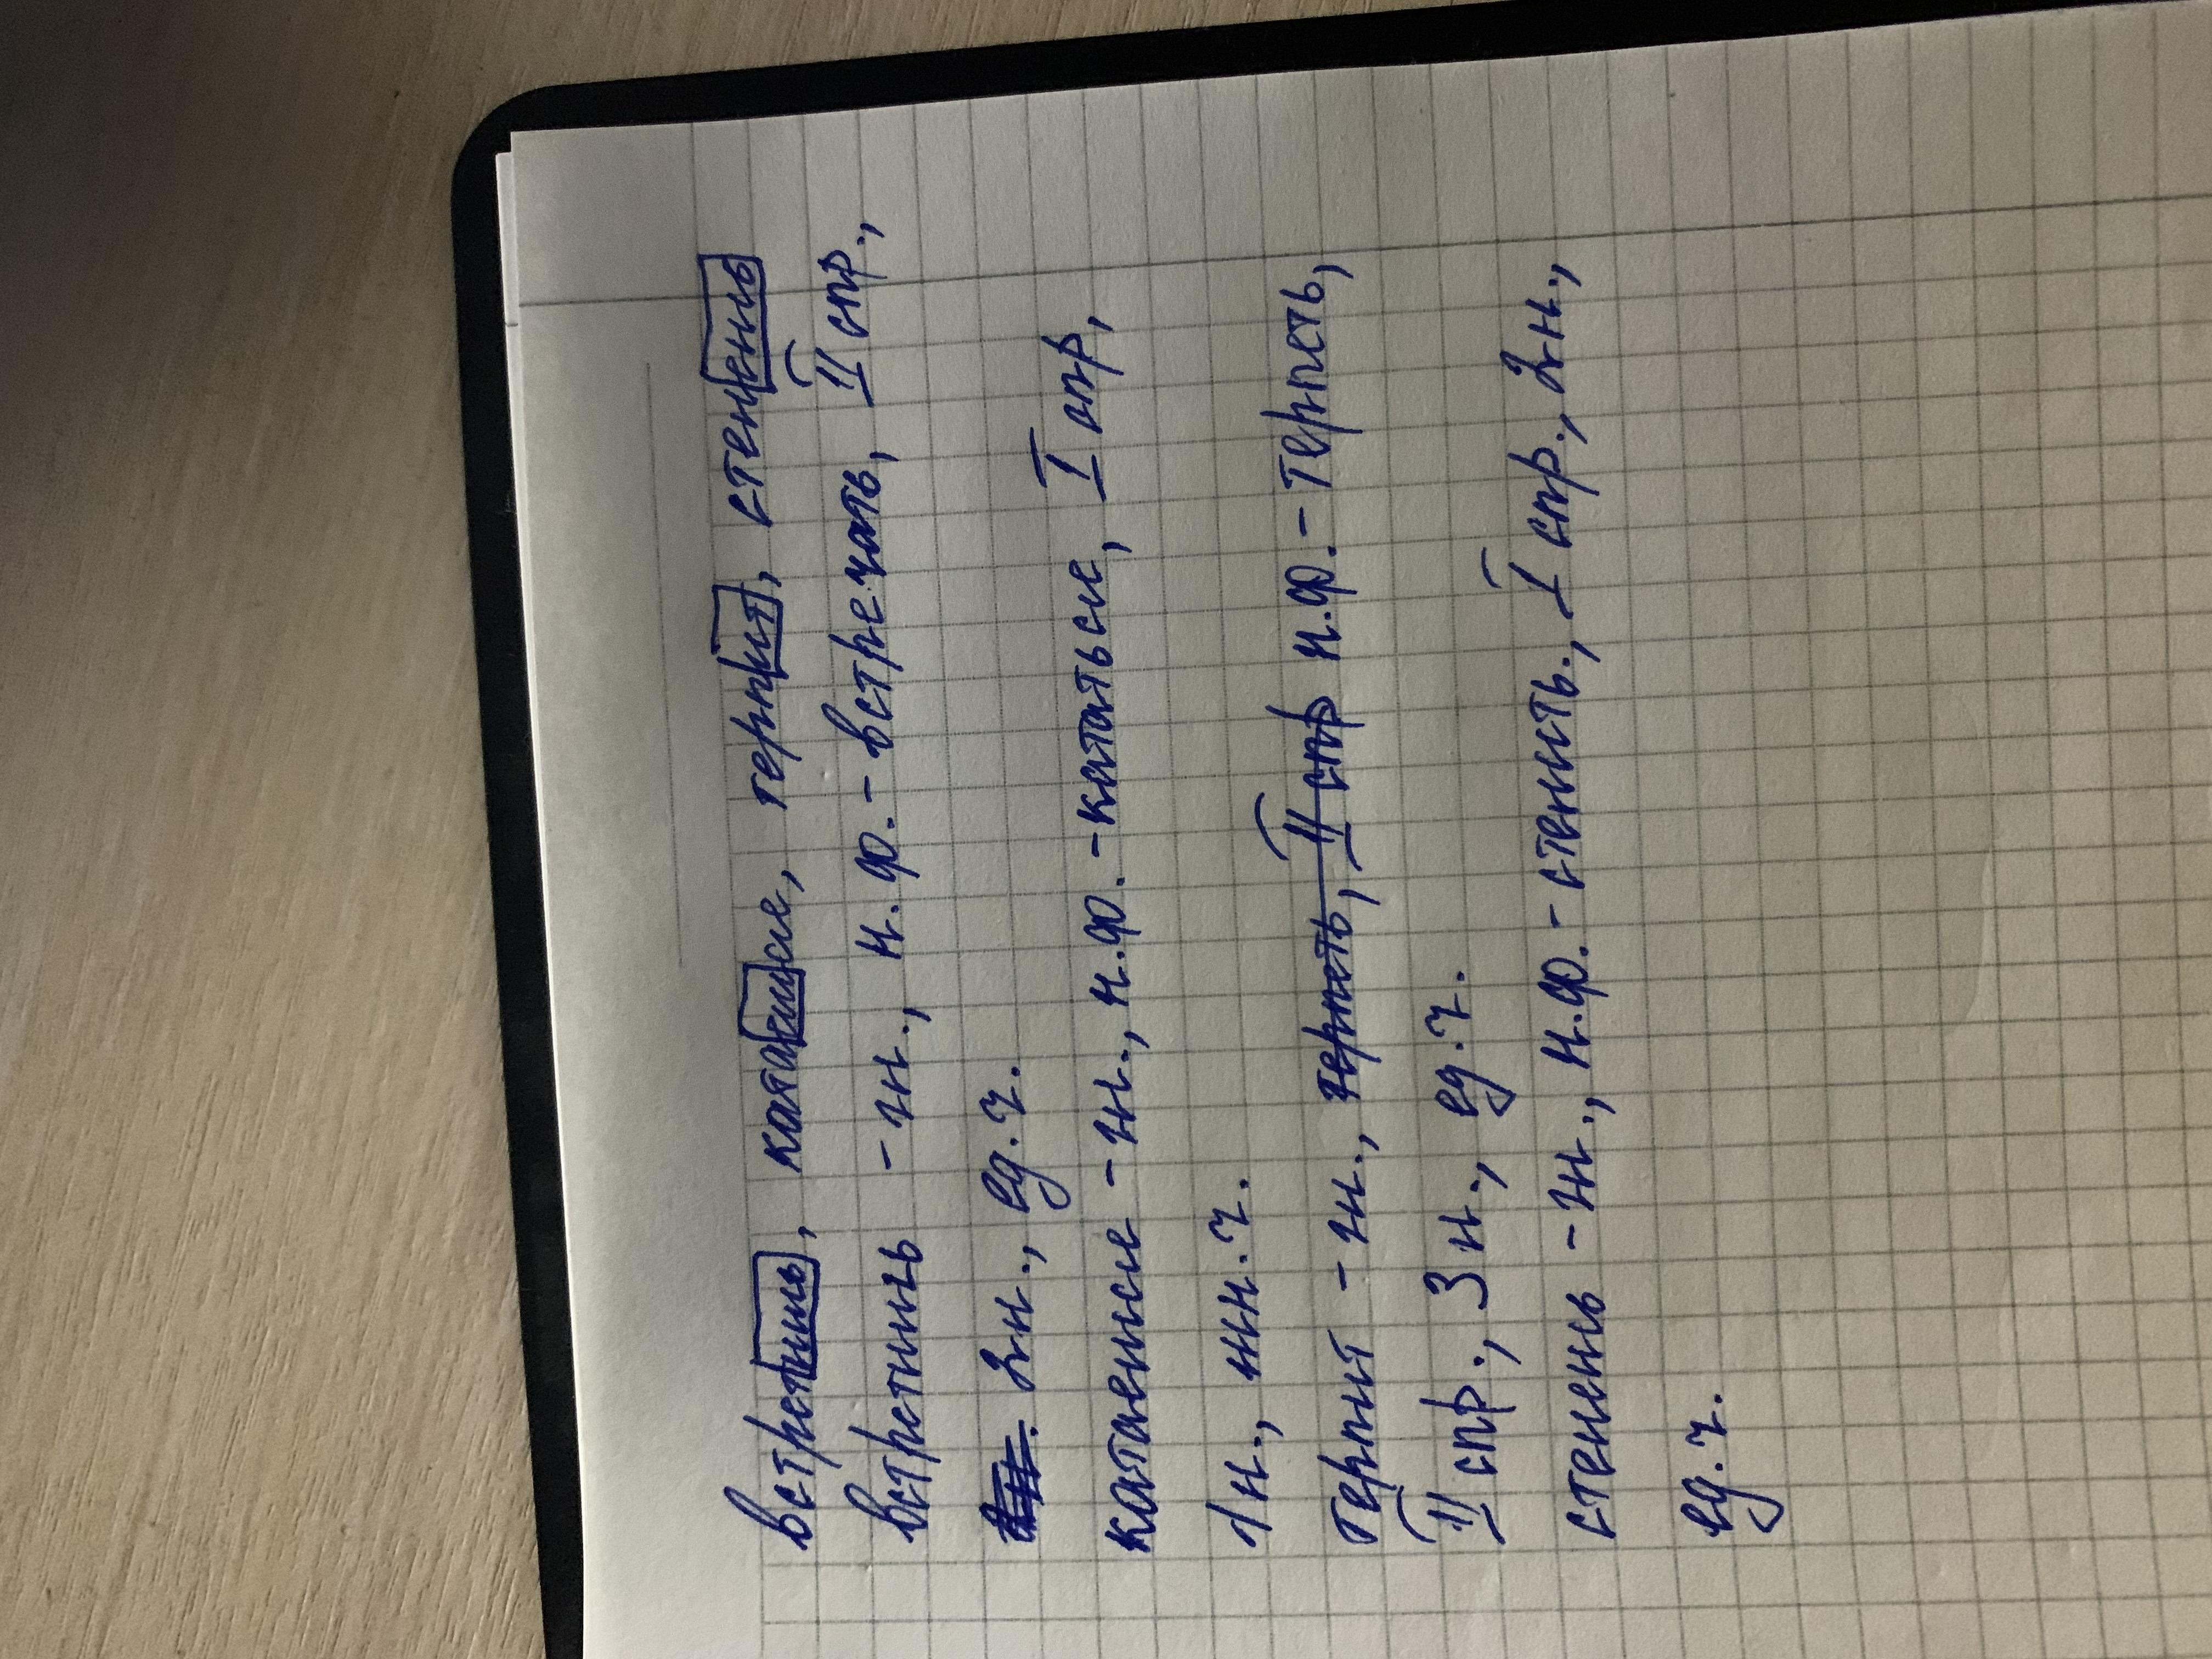 встретишь, катаемся, терпит, стенешь
встретишь - гл., н.ф. - встречать, II спр.,
2л., ед.ч.
катаемся - гл., н.ф. - кататься, I спр,
1л., мн.ч.
терпит - гл., терпеть, II спр н.ф. - терпеть,
II спр., 3л., ед.ч.
стенешь - гл., н.ф. - стенить., I спр., 2л.,
ед.ч.